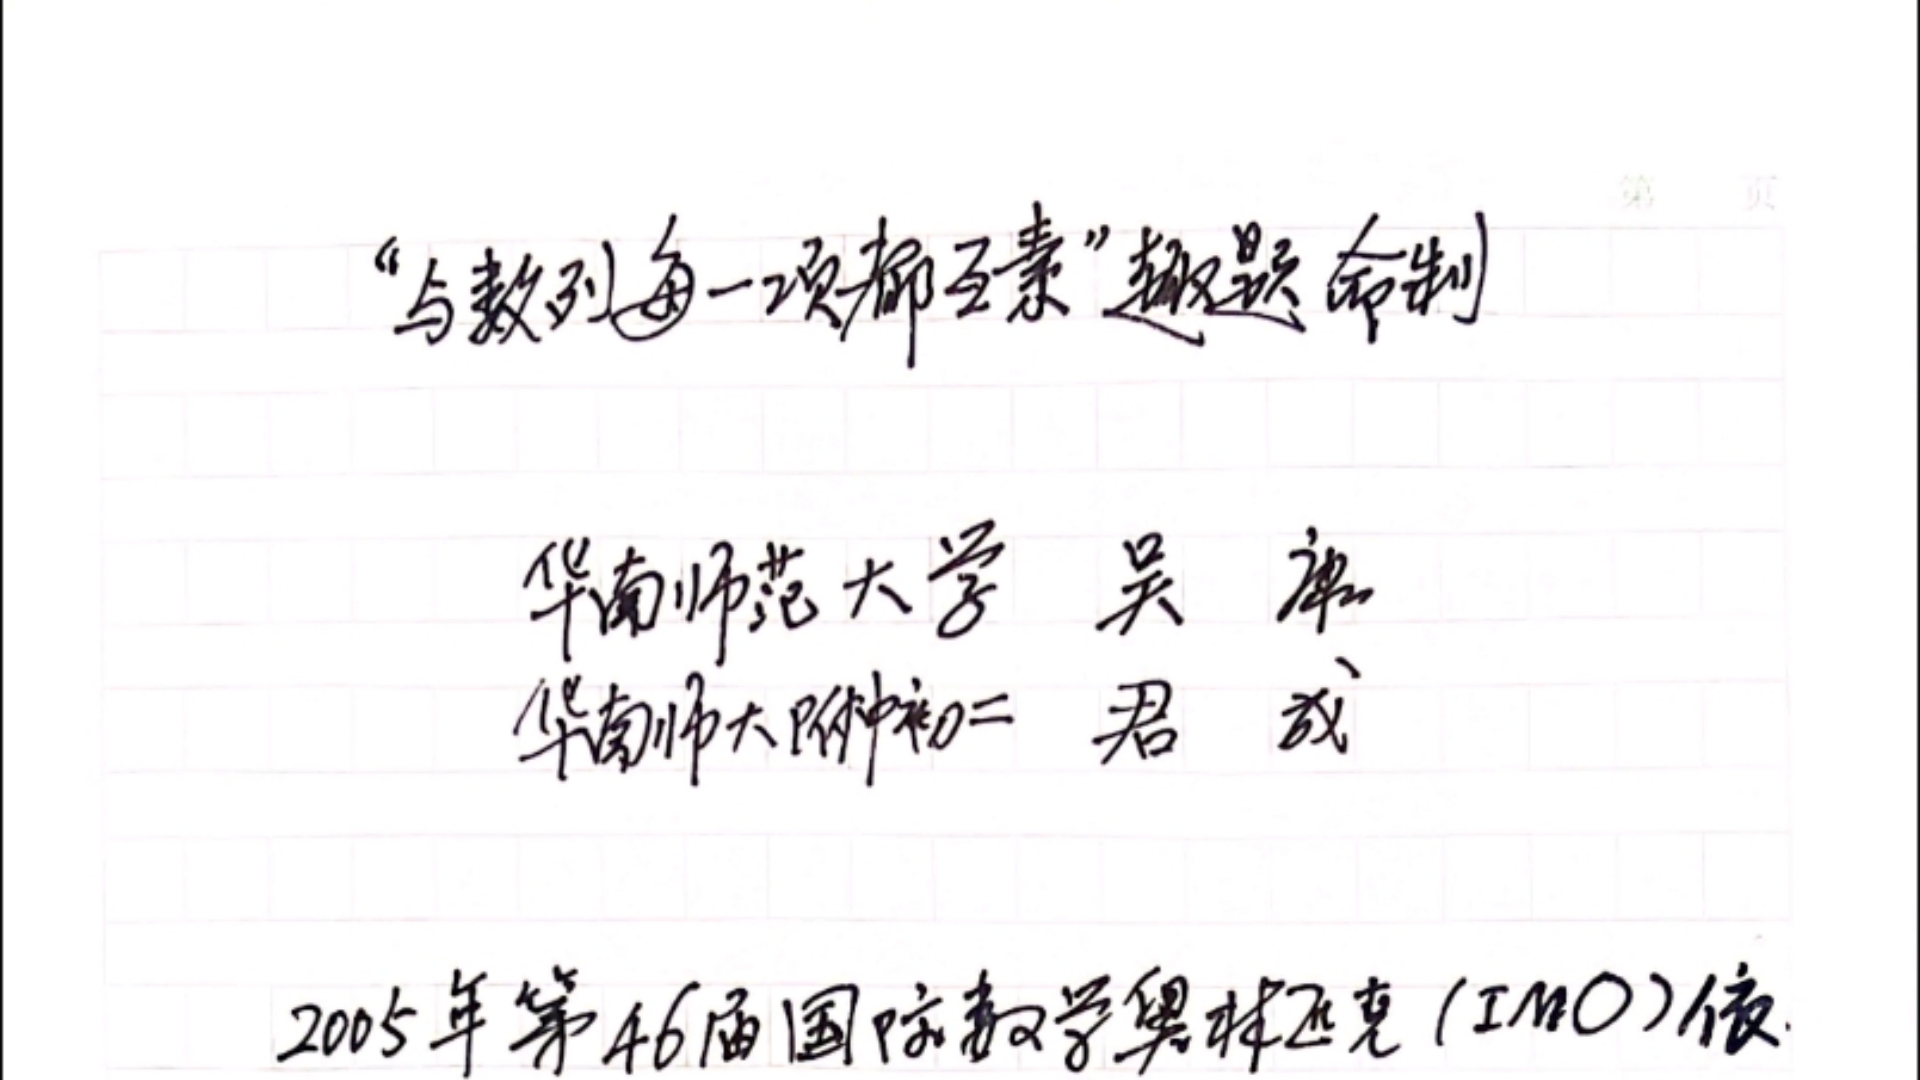 第 页
“与数列每一项都互素”趣题命制
华南师范大学 吴 康
华南师大附中初二 君 成
2005年第46届国际数学奥林匹克(IMO)依